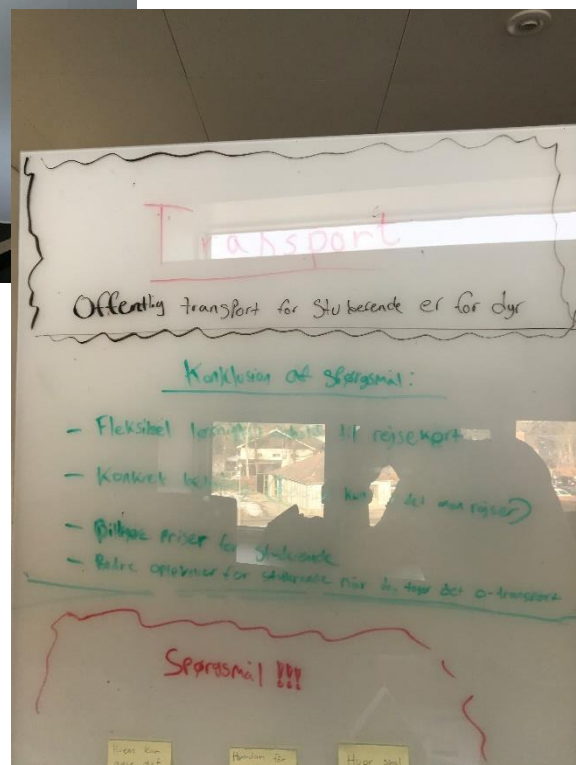 Transport
Offentlig transport for Studerende er for dyr
Konklusion af spørgsmål:
- Fleksibel til rejsekort
- Konkret kun det man rejser)
- Billige priser for studerende
- Bedre oplevelser for studerende når de tager det o-transport
Spørgsmål !!!
Hvordan får
Hvor skal